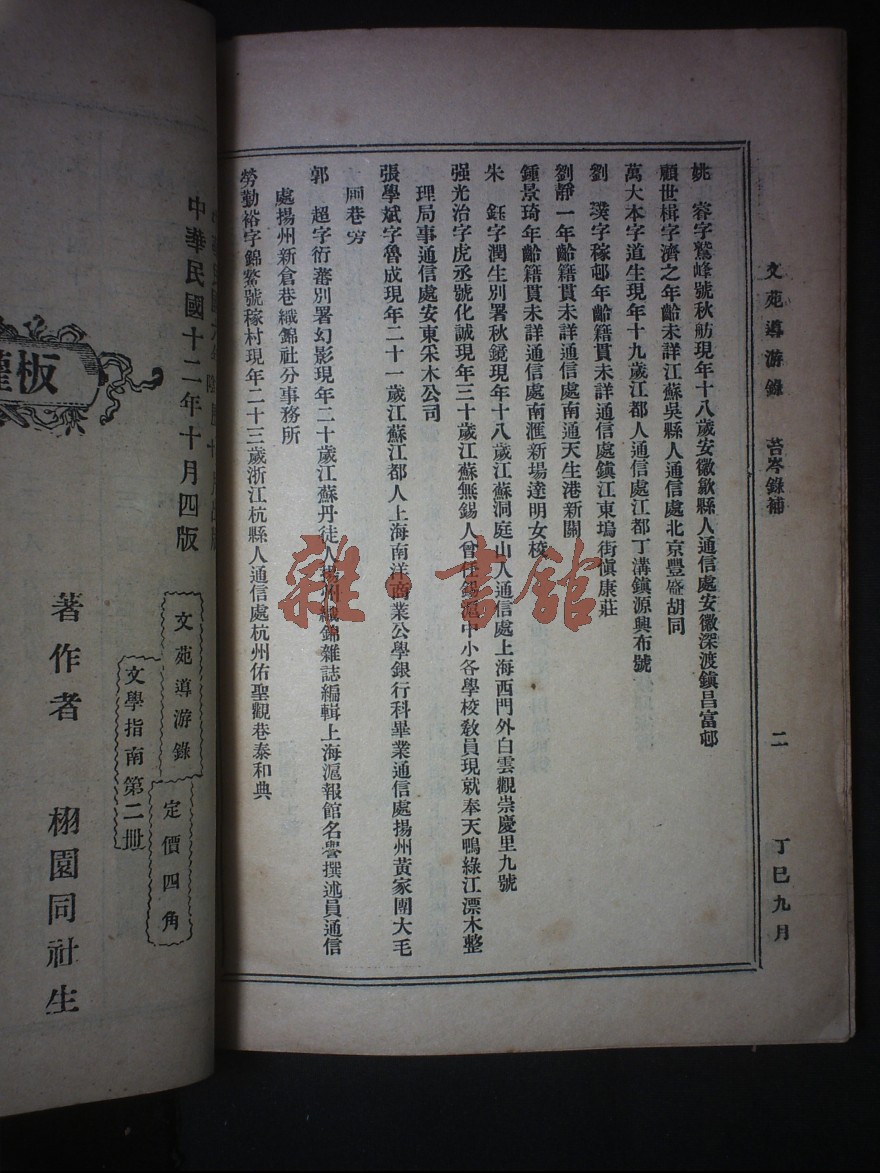 文苑導游錄　苔岑錄補　二　丁巳九月
姚　睿字鷲峰號秋舫現年十八歲安徽歙縣人通信處安徽深渡鎮昌富邨
顧世楫字濟之年齡未詳江蘇吳縣人通信處北京豐盛胡同
萬大本字道生現年十九歲江都人通信處江都丁溝鎮源興布號
劉　璞字稼邨年齡籍貫未詳通信處鎮江東塢街愼康莊
劉靜一年齡籍貫未詳通信處南通天生港新關
鍾景琦年齡籍貫未詳通信處南滙新場達明女校
朱　鈺字潤生別署秋鏡現年十八歲江蘇洞庭山人通信處上海西門外白雲觀崇慶里九號
强光治字虎丞號化誠現年三十歲江蘇無錫人曾任錫滬中小各學校敎員現就奉天鴨綠江漂木整
理局事通信處安東采木公司
張學斌字魯成現年二十一歲江蘇江都人上海南洋商業公學銀行科畢業通信處揚州黃家園大毛
巷
郭　超字衍蕃別署幻影現年二十歲江蘇丹徒人揚州織錦雜誌編輯上海滬報館名譽撰述員通信
處揚州新倉巷織錦社分事務所
勞勤裕字錦鰲號稼村現年二十三歲浙江杭縣人通信處杭州佑聖觀巷泰和典
雜·書館
中華民國十二年十月四版
文苑導游錄　定價四角
文學指南第二册
著作者　栩園同社生
板